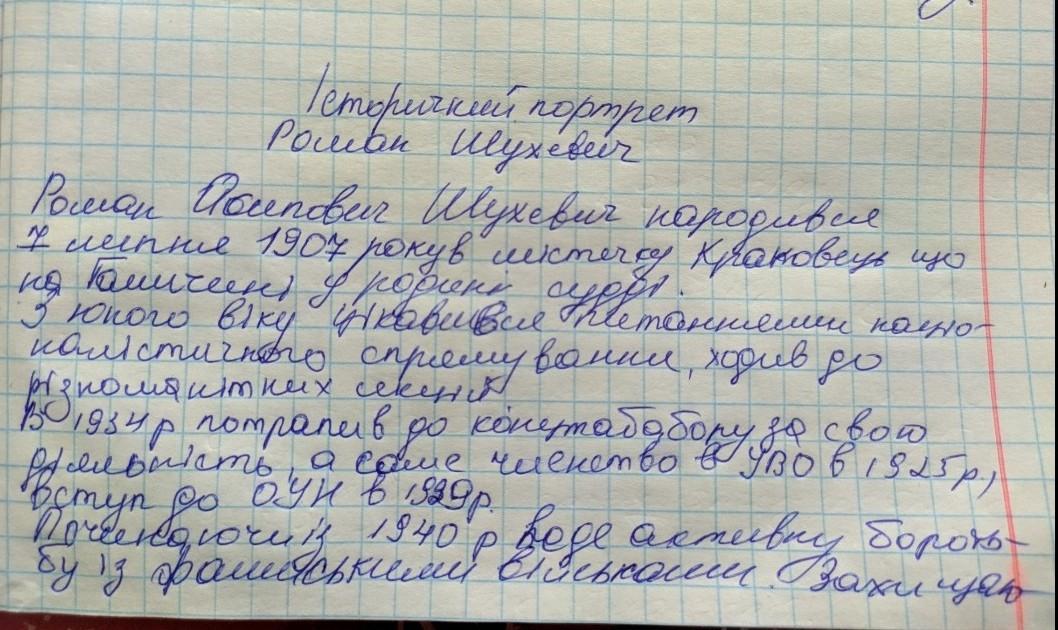 Історичний портрет
Роман Шухевич
Роман Йосипович Шухевич народився
7 липня 1907 року в містечку Краковець що
на Галичині у родині судді.
З юного віку цікавився питаннями націо-
налістичного спрямування, ходив до
різноманітних секцій
В 1934 р потрапив до концтабору за свою
діяльність, а саме членство в УВО в 1925 р,
вступ до ОУН в 1929 р.
Починаючи із 1940 р веде активну бороть-
бу із фашиськими військами. Захищаю